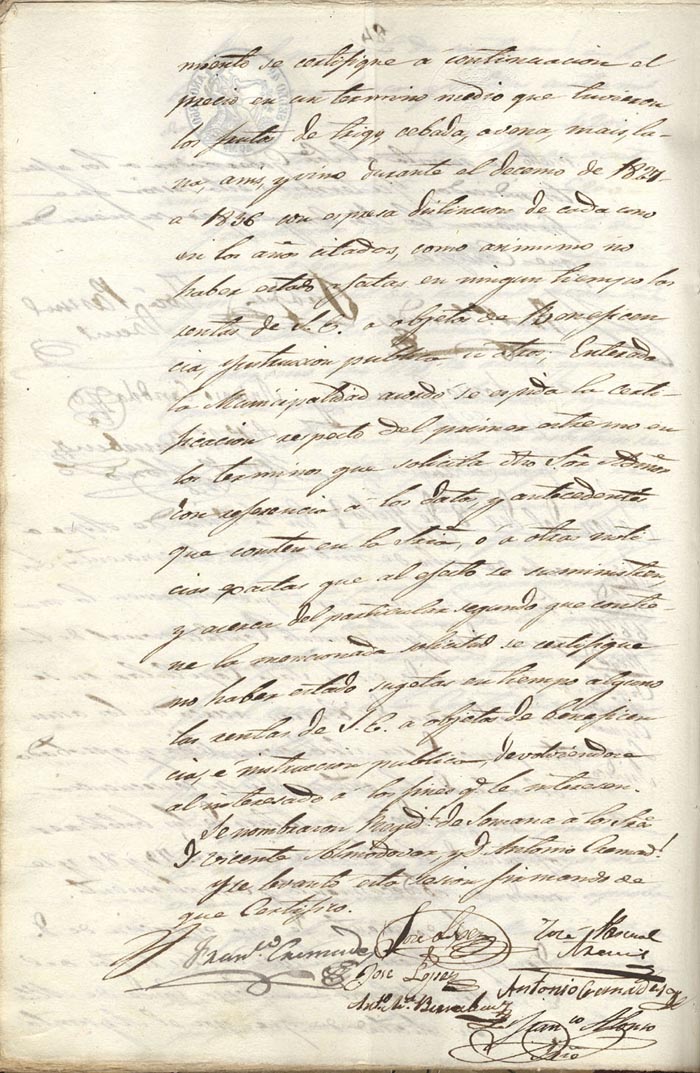 miento se certifique a continuacion el
precio en un termino medio que tuvieron
los frutos de trigo, cebada, avena, mais, la-
na, anis, y vino durante el decenio de 1827
a 1836 con espresa distincion de cada uno
en los años citados, como asimismo no
haber estado afectas en ningun tiempo las
rentas de S.E. a objetos de Beneficen
cia, ynstruccion publica u otros; Enterada
la Municipalidad acordó se espida la certi-
ficacion respecto del primer estremo en
los terminos que solicita dho Sor Admor
con referencia a los datos, y antecedentes
que consten en la Sria, o a otras noti-
cias exactas que al efecto se suministren,
y acerca del particular segundo que contie-
ne la mencionada solicitud se certifique
no haber estado sugetas en tiempo alguno
las rentas de S.E. a objetos de beneficen
cia, é instruccion publica, devolviendose
al interesado a los fines q.e le interesen.
Se nombraron Regid.s de Semana a los Sres
D. Vicente Almodovar, y D. Antonio Cremad.s
y se levantó esta Sesion firmando de
que Certifico.
Fran.co Cremades José Lopez José Pascual
José Lopez Antonio Cremades
Anto. Ma. Berenbeu
Fran.co Alonso
Srio